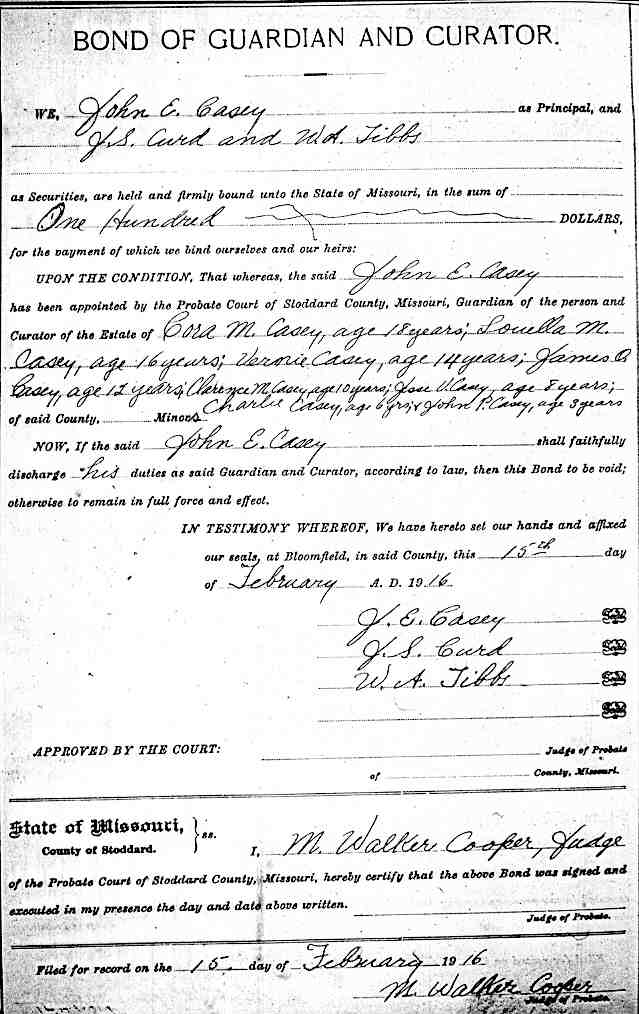 BOND OF GUARDIAN AND CURATOR.
WE, John E. Casey as Principal, and
J.S. Curd and W.A. Tibbs
as Securities, are held and firmly bound unto the State of Missouri, in the sum of
One Hundred DOLLARS,
for the payment of which we bind ourselves and our heirs:
UPON THE CONDITION, That whereas, the said John E. Casey
has been appointed by the Probate Court of Stoddard County, Missouri, Guardian of the person and
Curator of the Estate of Cora M. Casey, age 18 years; Louella M.
Casey, age 16 years; Vernie Casey, age 14 years; James O.
Casey, age 12 years; Clarence M. Casey, age 10 years; Jesse V. Casey, age 8 years;
of said County, Minors Charlie Casey, age 6 yrs, & John P. Casey, age 3 years
NOW, If the said John E. Casey shall faithfully
discharge his duties as said Guardian and Curator, according to law, then this Bond to be void;
otherwise to remain in full force and effect.
IN TESTIMONY WHEREOF, We have hereto set our hands and affixed
our seals, at Bloomfield, in said County, this 15th day
of February A. D. 1916
J. E. Casey
J. S. Curd
W. A. Tibbs
APPROVED BY THE COURT:
Judge of Probate
of County, Missouri.
State of Missouri,
County of Stoddard. ss.
I, M. Walker Cooper, Judge
of the Probate Court of Stoddard County, Missouri, hereby certify that the above Bond was signed and
executed in my presence the day and date above written.
Judge of Probate.
Filed for record on the 15. day of February 1916
M. Walker Cooper
Judge of Probate.